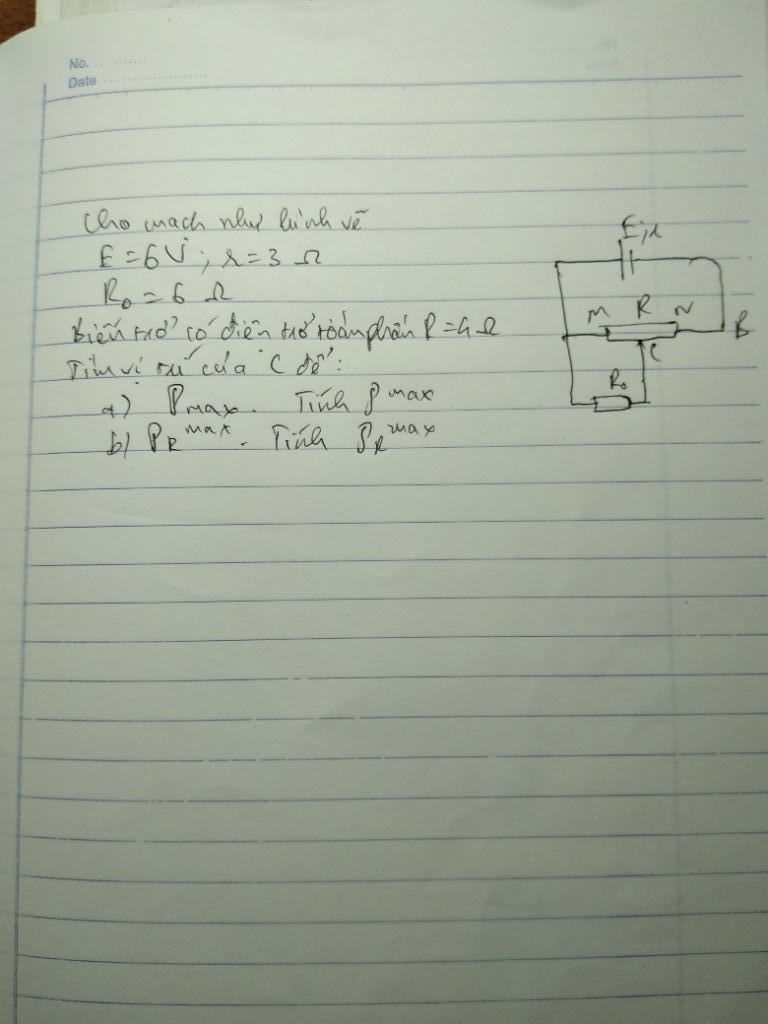 No.
Date
Cho mạch như hình vẽ
E = 6V ; r = 3 Ω
R₀ = 6 Ω
Biến trở có điện trở toàn phần R = 4 Ω
Tìm vị trí của C để :
a) Pmax. Tính Pmax
b) P_R max. Tính P_R max
E; r
M R N
B
C
R₀